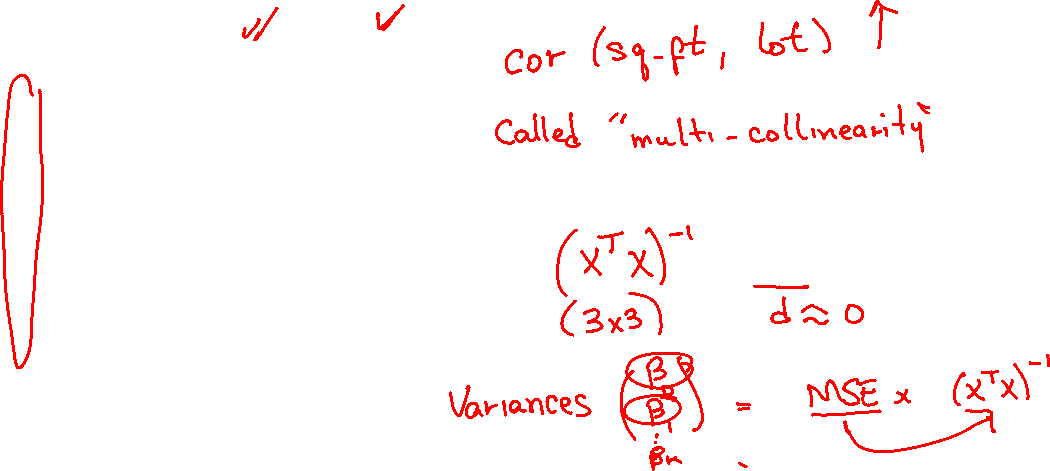 cor (sq-ft, lot) ↑
Called "multi-collinearity"
(XᵀX)⁻¹
(3x3) d ≈ 0
Variances (β₀ β₁ ⋮ βₖ) = MSE x (XᵀX)⁻¹